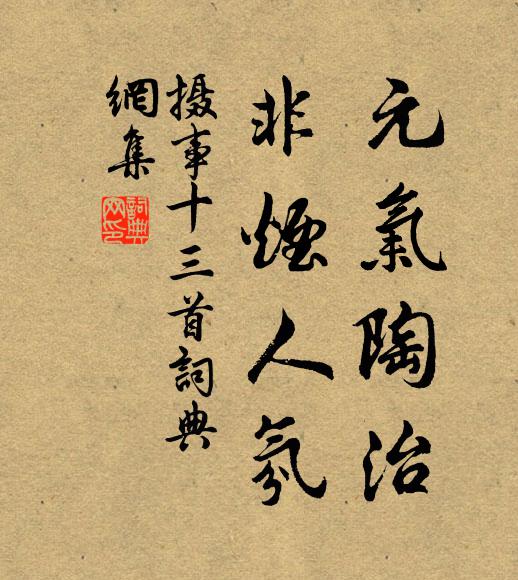 元氣陶治
非煙人氛
摄事十三首詞典
網集
詞典
网印